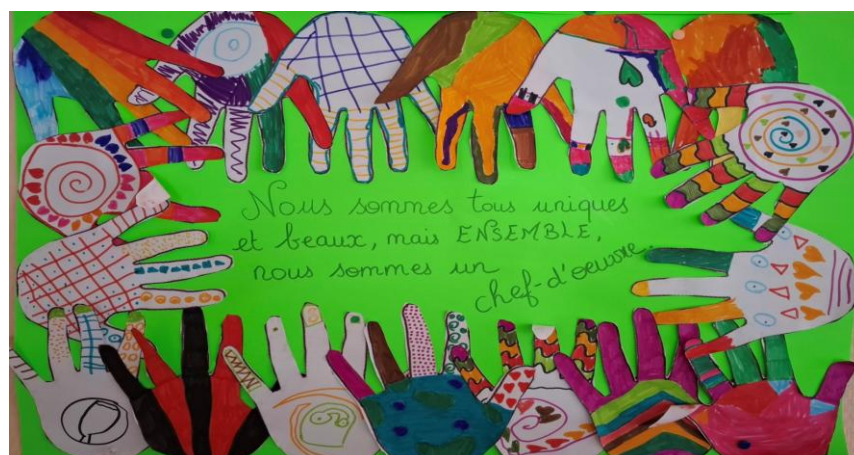 Nous sommes tous uniques
et beaux, mais ENSEMBLE,
nous sommes un
chef-d'oeuvre.